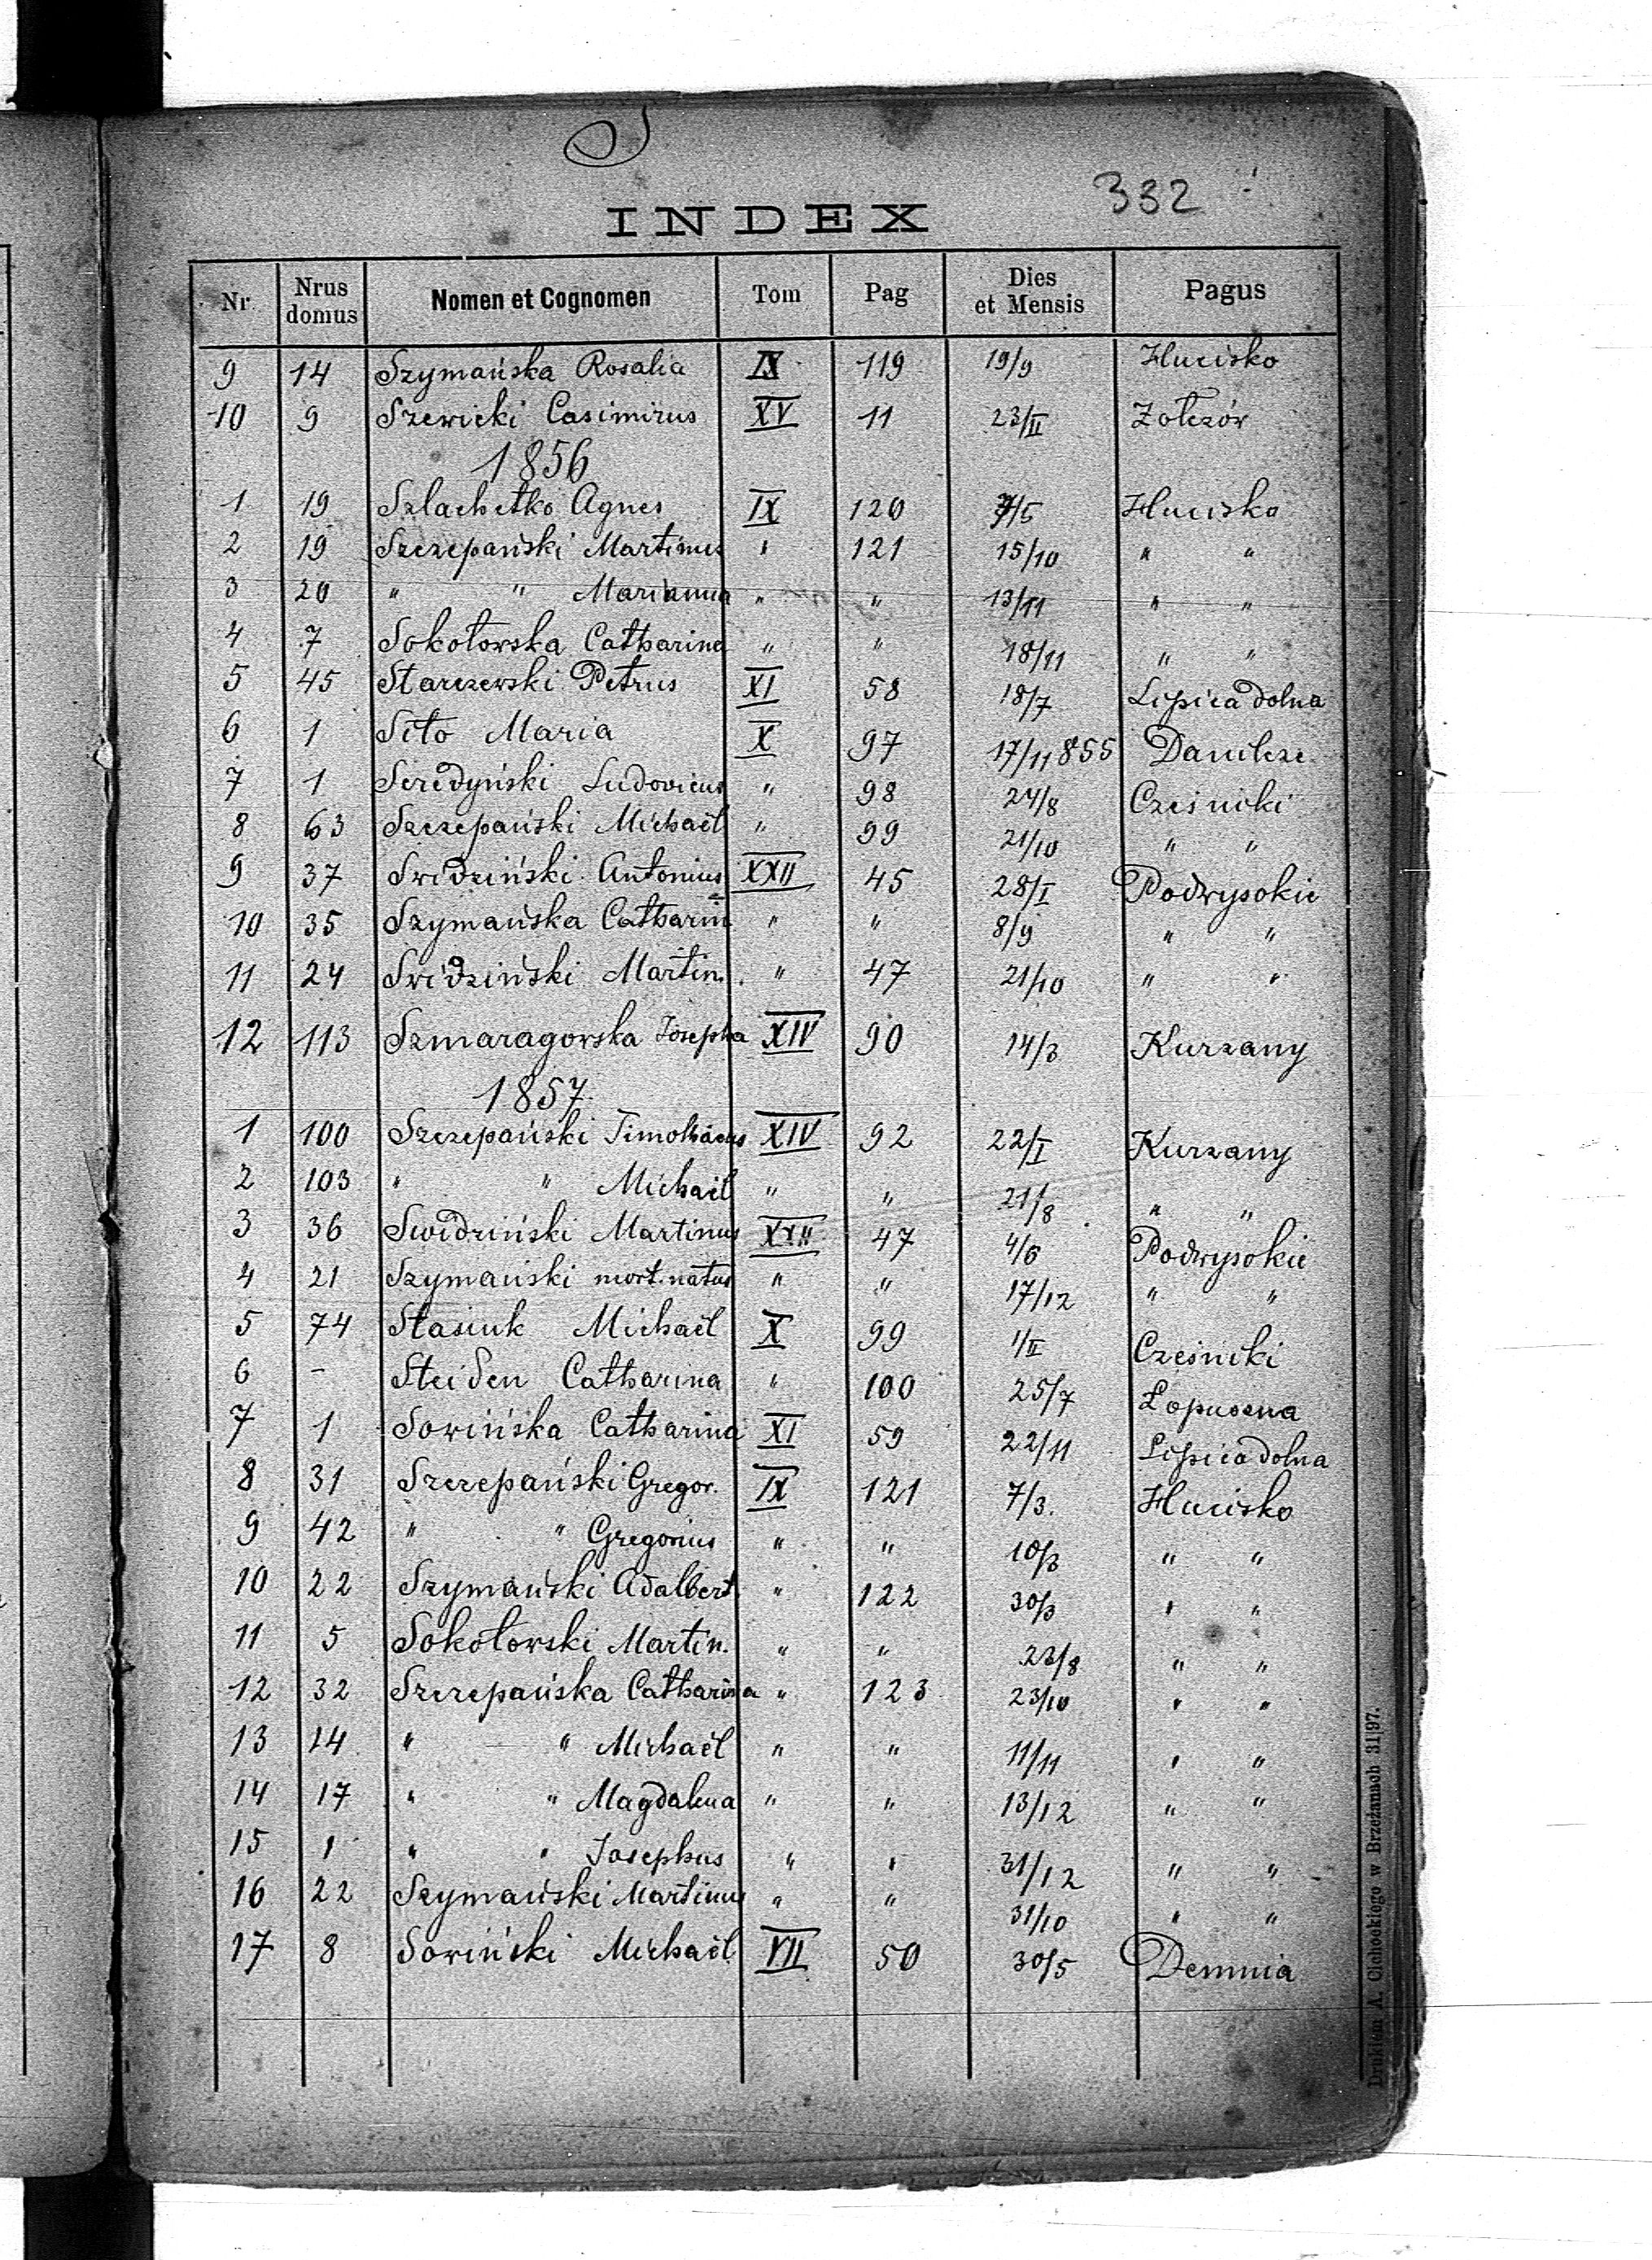 S
332
INDEX
Nr. Nrus domus Nomen et Cognomen Tom Pag Dies et Mensis Pagus
9 14 Szymańska Rosalia IX 119 19/9 Hucisko
10 9 Szewicki Casimirus XV 11 23/II Zołczów
1856
1 19 Szlachetko Agnes IX 120 7/5 Hucisko
2 19 Szczepański Martinus " 121 15/10 " "
3 20 " " Marianna " " 13/11 " "
4 7 Sokołowska Catharina " " 18/11 " "
5 45 Starczewski Petrus XI 58 18/7 Lipica dolna
6 1 Sito Maria X 97 17/11 855 Danilcze
7 1 Seredyński Ludovicus " 98 24/8 Cześniki
8 63 Szczepański Michaël " 99 21/10 " "
9 37 Swidziński Antonius XXII 45 28/I Podwysokie
10 35 Szymańska Catharin " " 8/9 " "
11 24 Swidziński Martin. " 47 21/10 " "
12 113 Szmaragowska Josepha XIV 90 14/3 Kurzany
1857
1 100 Szczepański Timotháeus XIV 92 22/I Kurzany
2 103 " " Michaël " " 21/8 " "
3 36 Swidziński Martinus XXII 47 4/6 Podwysokie
4 21 Szymański mort. natus " " 17/12 " "
5 74 Stasiuk Michaël X 99 1/II Cześniki
6 - Steiden Catharina " 100 25/7 Łopuszna
7 1 Sowińska Catharina XI 59 22/11 Lipica dolna
8 31 Szczepański Gregor. IX 121 7/3. Hucisko
9 42 " " Gregorius " " 10/3 " "
10 22 Szymański Adalbert. " 122 30/3 " "
11 5 Sokołowski Martin. " " 23/8 " "
12 32 Szczepańska Catharina " 123 23/10 " "
13 14 " " Michaël " " 11/11 " "
14 17 " " Magdalena " " 13/12 " "
15 1 " " Josephus " " 31/12 " "
16 22 Szymański Martinus " " 31/10 " "
17 8 Sowiński Michaël VII 50 30/5 Demnia
Drukiem A. Cichockiego w Brzeżanach 31|97.